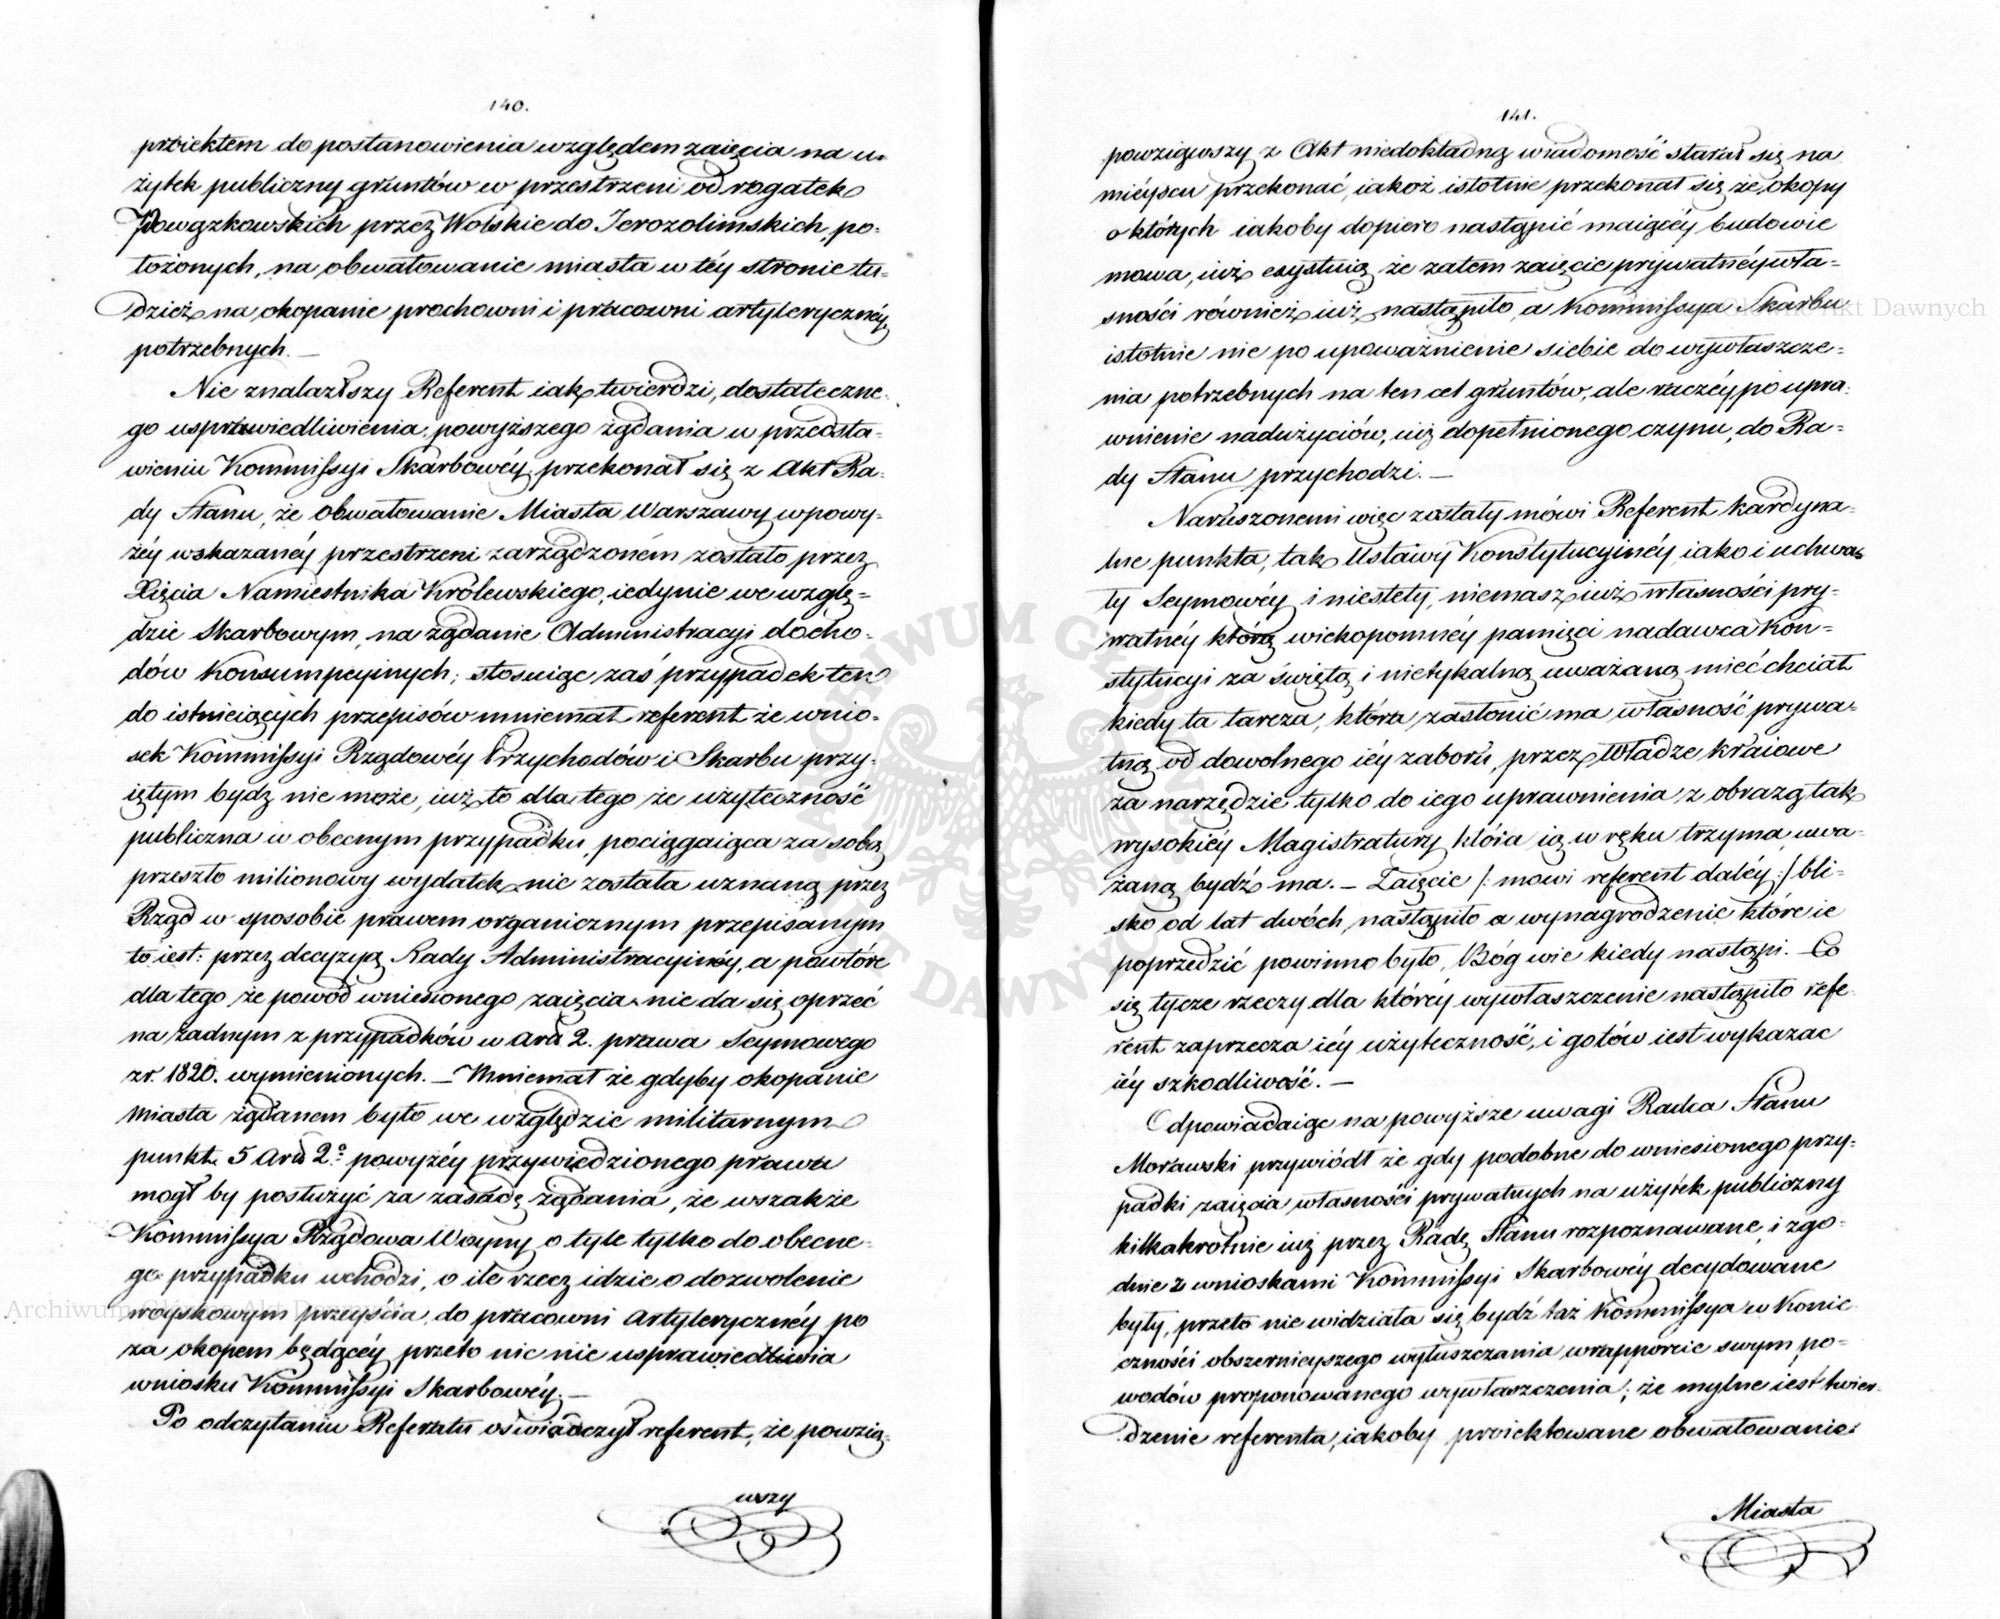 140.
proiektem do postanowienia względem zaięcia na u-
żytek publiczny gruntów w przestrzeni od rogatek
Powązkowskich przez Wolskie do Jerozolimskich, po-
łożonych, na obwałowanie miasta w téy stronie tu-
dzież na okopanie prochowni i pracowni artyleryczney
potrzebnych. —
Nie znalazłszy Referent iak twierdzi, dostateczne-
go usprawiedliwienia powyższego żądania w przedsta-
wieniu Kommissyi Skarbowéy przekonał się z Akt Ra-
dy Stanu, że obwałowanie Miasta Warszawy w powy-
żéy wskazanéy przestrzeni zarządzoném zostało przez
Xięcia Namiestnika Królewskiego, iedynie we wzglę-
dzie Skarbowym, na żądanie Administracyi docho-
dów Konsumpcyinych; stosuiąc zaś przypadek ten
do istnieiących przepisów mniemał referent że wnio-
sek Kommissyi Rządowéy Przychodów i Skarbu przy-
iętym bydź nie może, iuż to dla tego że użyteczność
publiczna w obecnym przypadku, pociągaiąca za sobą
przeszło milionowy wydatek nie została uznaną przez
Rząd w sposobie prawem organicznym przepisanym
to iest: przez decyzyą Rady Administracyinéy, a powtóre
dla tego że powód wniesionego zaięcia nie da się oprzeć
na żadnym z przypadków w Art 2. prawa Seymowego
z r. 1820. wymienionych. — Mniemał że gdyby okopanie
miasta żądanem było we względzie militarnym
punkt 5 Artu 2o powyżéy przywiedzionego prawa
mogł by posłużyć za zasadę żądania, że wszakże
Kommissya Rządowa Woyny o tyle tylko do obecne-
go przypadku wchodzi, o ile rzecz idzie o dozwolenie
woyskowym przeyścia do pracowni Artyleryczney po
za okopem będącéy przeto nic nie usprawiedliwia
wniosku Kommissyi Skarbowéy. —
Po odczytaniu Referatu oświadczył referent, że powzią-
wszy
141.
powziąwszy z Akt niedokładną wiadomość starał się na
mieyscu przekonać, iakoż istotnie przekonał się że okopy
o których iakoby dopiero nastąpić maiącéy budowie
mowa, iuż exystuią że zatem zaięcie prywatnéy wła-
sności również iuż nastąpiło, a Kommissya Skarbu
istotnie nie po upoważnienie siebie do wywłaszcze-
nia potrzebnych na ten cel gruntów, ale raczéy po upra-
wnienie nadużyciów, iuż dopełnionego czynu, do Ra-
dy Stanu przychodzi. —
Naruszonemi więc zostały mówi Referent kardyna-
lne punkta, tak Ustawy Konstytucyinéy, iako i uchwa-
ły Seymowéy i niestety, niemasz iuż własności pry-
watnéy którą wiekopomnéy pamięci nadawca Kon-
stytucyi za świętą i nietykalną uważaną mieć chciał
kiedy ta tarcza, która zasłonić ma własność prywa-
tną od dowolnego iéy zaboru, przez Władze kraiowe
za narzędzie tylko do iego uprawnienia z obrazą tak
wysokiéy Magistratury która ią w ręku trzyma, uwa-
żaną bydź ma. — Zaięcie /: mowi referent daléy :/ bli-
sko od lat dwóch nastąpiło a wynagrodzenie które ie
poprzedzić powinno było, Bóg wie kiedy nastąpi. — Co
się tycze rzeczy dla któréy wywłaszczenie nastąpiło refe
rent zaprzecza iéy użyteczność, i gotów iest wykazac
iéy szkodliwość. —
Odpowiadaiąc na powyższe uwagi Radca Stanu
Morawski przywiódł że gdy podobne do wniesionego przy-
padki zaięcia własności prywatnych na użytek publiczny
kilkakrotnie iuż przez Radę Stanu rozpoznawane, i zgo-
dnie z wnioskami Kommissyi Skarbowéy decydowane
były, przeto nie widziała się bydź taż Kommissya w Konie
czności obszernieyszego wyłuszczania w rapporcie swym po-
wodów proponowanego wywłaszczenia; że mylne iest twier-
dzenie referenta, iakoby proiektowane obwałowanie
Miasta